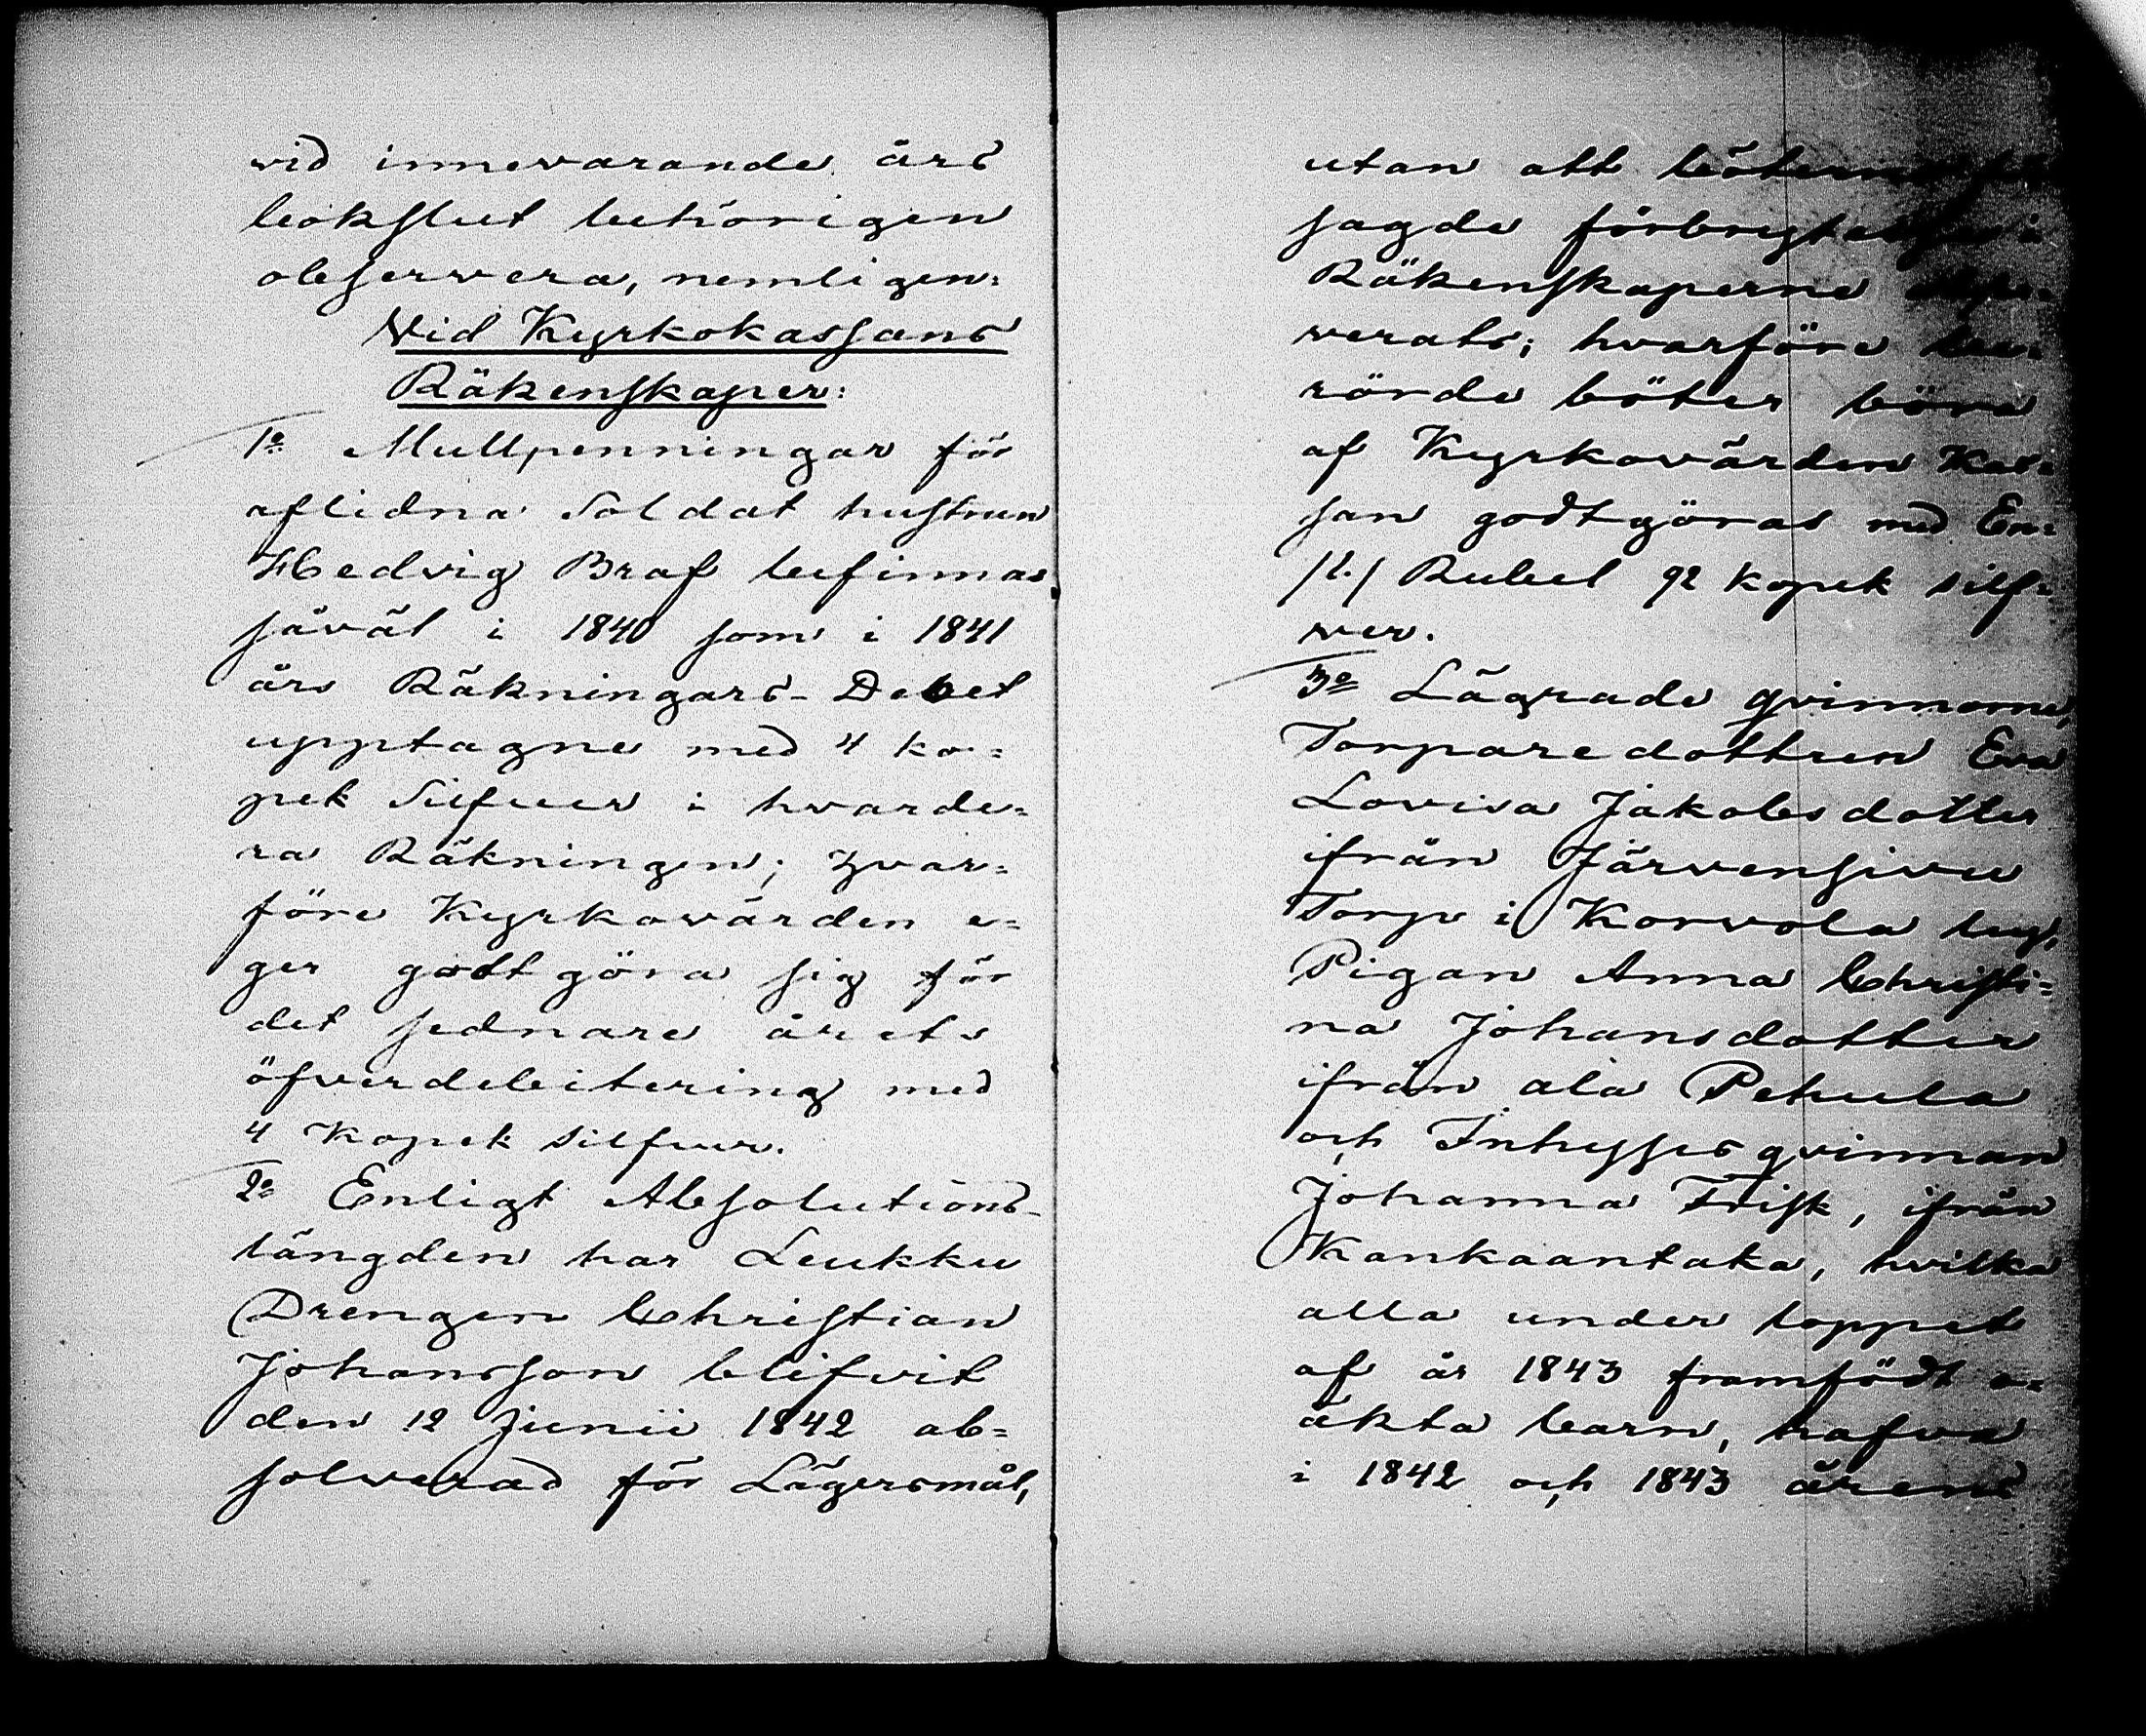 vid innevarande års
bokslut behörigen
observera, nemligen:
Vid Kyrkokassans
Räkenskaper:
1o Mullpenningar för
aflidna Soldat hustrun
Hedvig Braf befinnas
såväl i 1840 som i 1841
års Räkningars Debet
upptagne med 4 ko=
pek Silfver i hvarde=
ra Räkningen; hvar=
före Kyrkovärden e=
ger godtgöra sig för
det sednare årets
öfverdebitering med
4 Kopek silfver.
2o Enligt Absolutions-
längden har Leukku
Drengen Christian
Johansson blifvit
den 12 Junii 1842 ab=
solverad för Lägersmål,
utan att böterne för
sagde förbrytelse i
Räkenskaperne obser=
verats; hvarföre be=
rörde böter böra
af Kyrkovärden Kas=
san godtgöras med En=
/1./ Rubel 92 kopek silf=
ver.
3o Lägrade qvinnorne,
Torparedottren Eva
Lovisa Jakobsdotter
ifrån Järvensivu
Torp i Korvola by,
Pigan Anna Christi=
na Johansdotter
ifrån ala Pehula
och Inhysesqvinnan
Johanna Frisk, ifrån
Kankaantaka, hvilka
alla under loppet
af år 1843 framfödt o=
äkta barn, hafva
i 1842 och 1843 årens